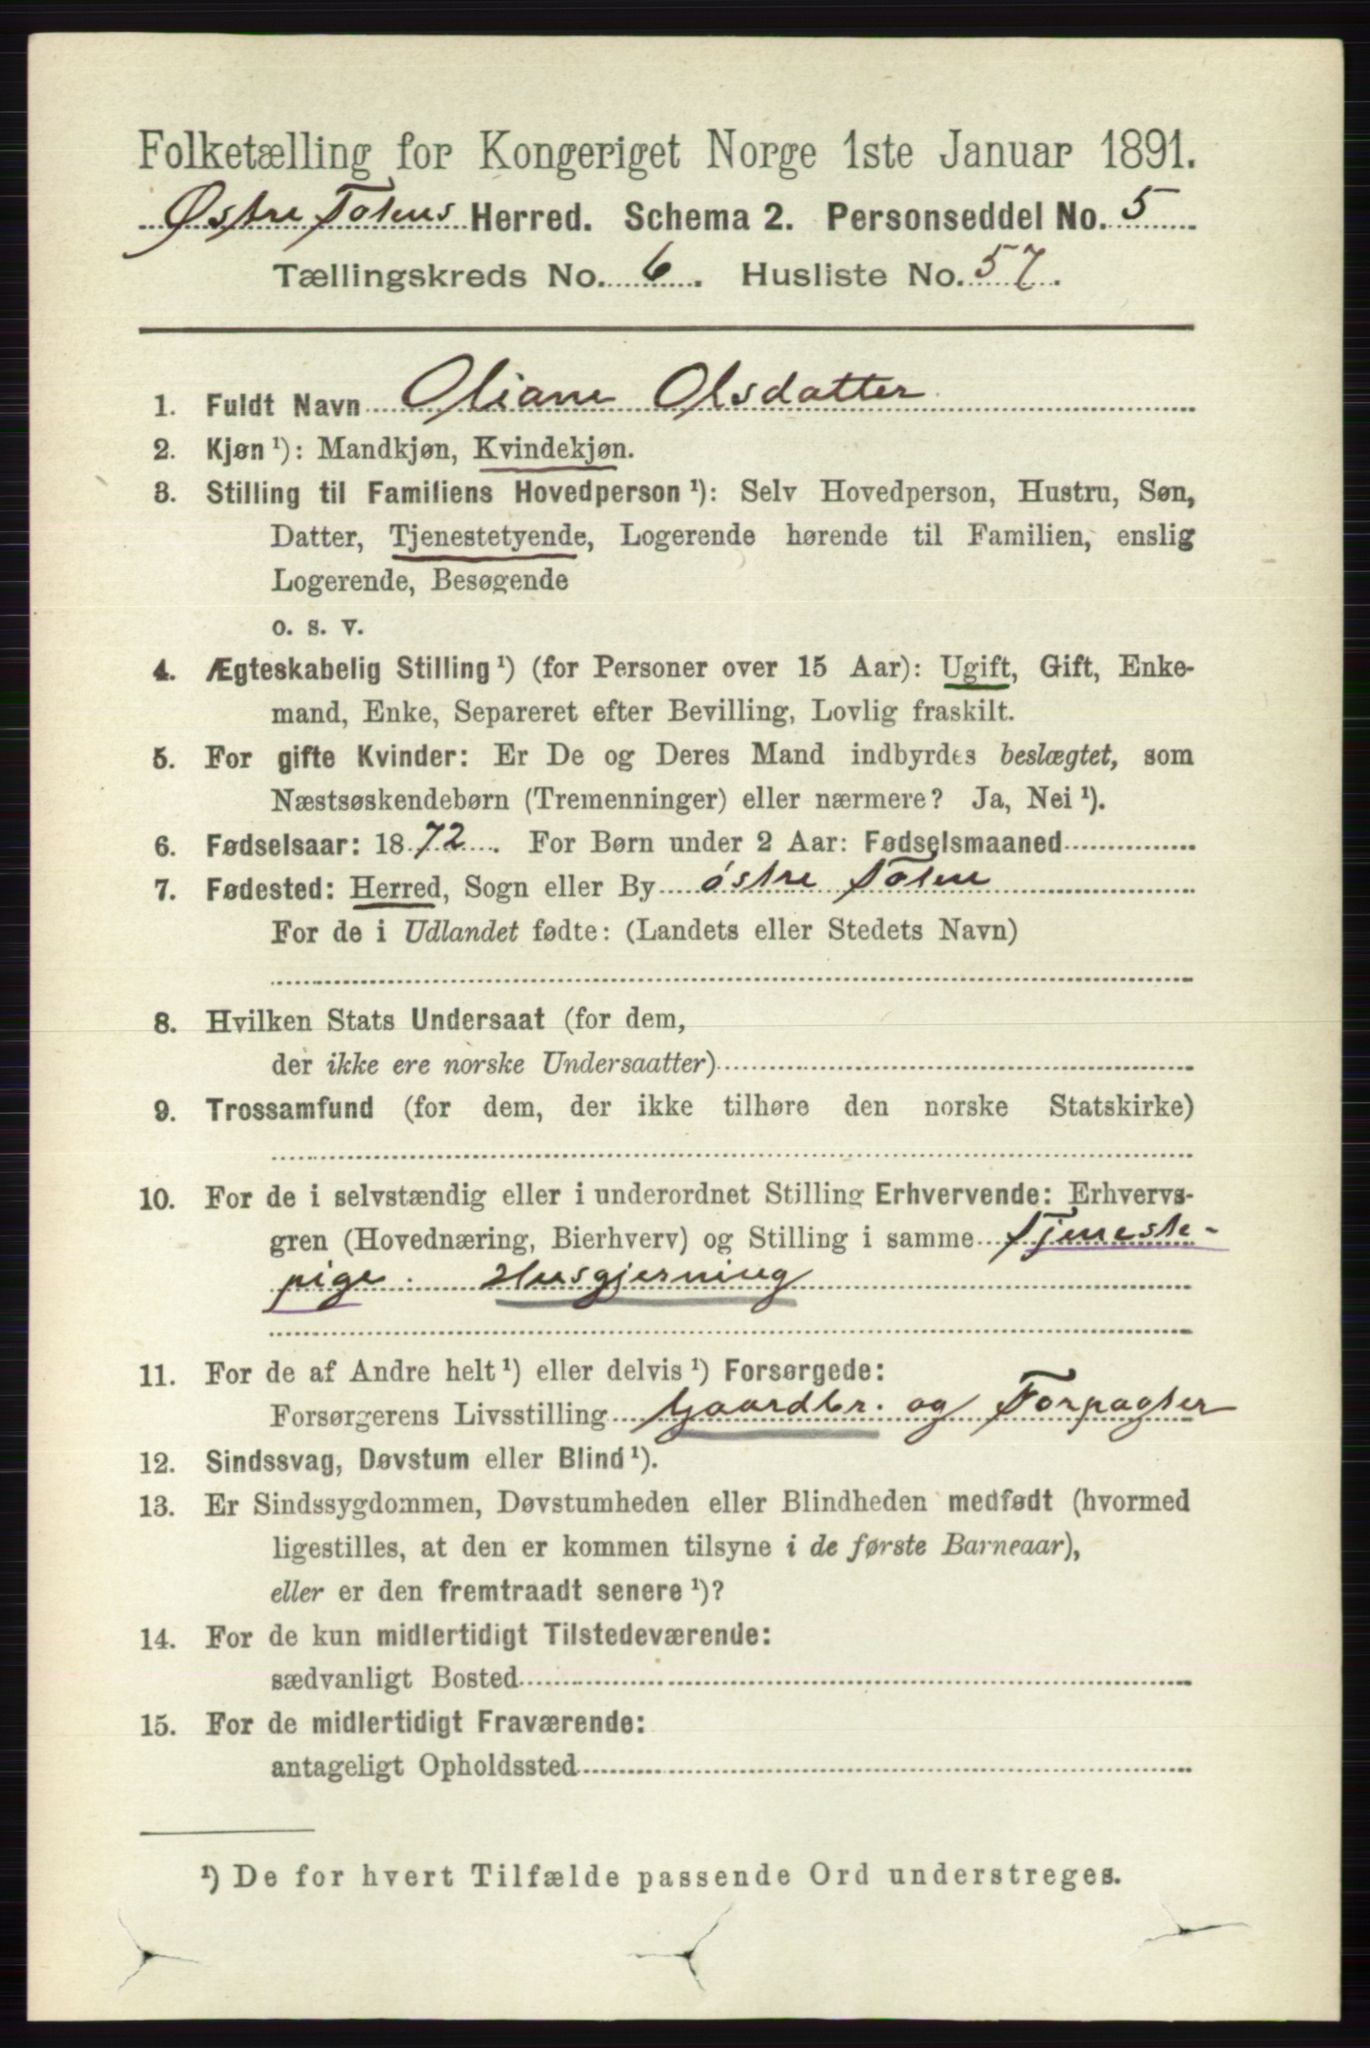 Folketælling for Kongeriget Norge 1ste Januar 1891.
Østre Totens Herred. Schema 2. Personseddel No. 5
Tællingskreds No. 6. Husliste No. 57.
1. Fuldt Navn Oliane Olsdatter
2. Kjøn ¹): Mandkjøn, Kvindekjøn.
3. Stilling til Familiens Hovedperson ¹): Selv Hovedperson, Hustru, Søn,
Datter, Tjenestetyende, Logerende hørende til Familien, enslig
Logerende, Besøgende
o. s. v.
4. Ægteskabelig Stilling ¹) (for Personer over 15 Aar): Ugift, Gift, Enke-
mand, Enke, Separeret efter Bevilling, Lovlig fraskilt.
5. For gifte Kvinder: Er De og Deres Mand indbyrdes beslægtet, som
Næstsøskendebørn (Tremenninger) eller nærmere? Ja, Nei ¹).
6. Fødselsaar: 1872. For Børn under 2 Aar: Fødselsmaaned
7. Fødested: Herred, Sogn eller By østre Toten
For de i Udlandet fødte: (Landets eller Stedets Navn)
8. Hvilken Stats Undersaat (for dem,
der ikke ere norske Undersaatter)
9. Trossamfund (for dem, der ikke tilhøre den norske Statskirke)
10. For de i selvstændig eller i underordnet Stilling Erhvervende: Erhvervs-
gren (Hovednæring, Bierhverv) og Stilling i samme Tjeneste-
pige. Husgjerning
11. For de af Andre helt ¹) eller delvis ¹) Forsørgede:
Forsørgerens Livsstilling Gaardbr. og Forpagter
12. Sindssvag, Døvstum eller Blind ¹).
13. Er Sindssygdommen, Døvstumheden eller Blindheden medfødt (hvormed
ligestilles, at den er kommen tilsyne i de første Barneaar),
eller er den fremtraadt senere ¹)?
14. For de kun midlertidigt Tilstedeværende:
sædvanligt Bosted
15. For de midlertidigt Fraværende:
antageligt Opholdssted
¹) De for hvert Tilfælde passende Ord understreges.